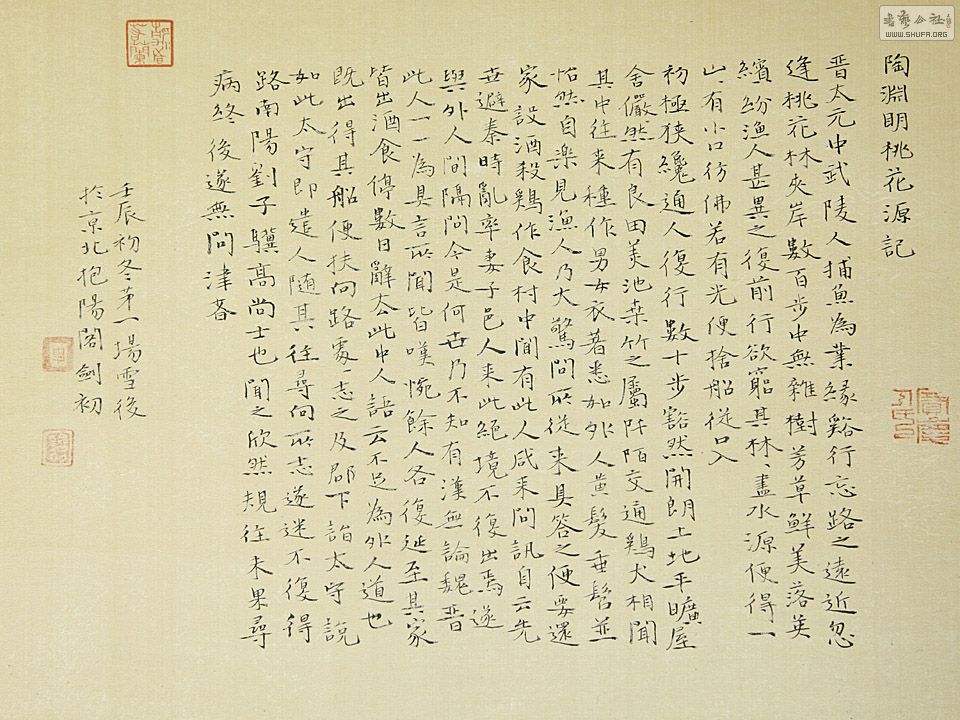 陶淵明桃花源記
晋太元中武陵人捕魚為業緣谿行忘路之遠近忽
逢桃花林夾岸數百步中無雜樹芳草鮮美落英
繽紛漁人甚異之復前行欲窮其林、盡水源便得一
山、有小口彷佛若有光便捨船從口入
初極狹纔通人復行數十步豁然開朗土地平曠屋
舍儼然有良田美池桑竹之屬阡陌交通鷄犬相聞
其中往来種作男女衣著悉如外人黄髮垂髫並
怡然自樂見漁人乃大驚問所從来具答之便要還
家設酒殺鷄作食村中聞有此人咸来問訊自云先
世避秦時亂率妻子邑人来此絕境不復出焉遂
與外人間隔問今是何世乃不知有漢無論魏晋
此人一一為具言所聞皆嘆惋餘人各復延至其家
皆出酒食停數日辭去此中人語云不足為外人道也
既出得其船便扶向路處志之及郡下詣太守說
如此太守即遣人隨其往尋向所志遂迷不復得
路南陽劉子驥高尚士也聞之欣然規往未果尋
病終後遂無問津者
壬辰初冬第一場雪後
於京北抱陽閣劍初
書藝公社
WWW.SHUFA.ORG